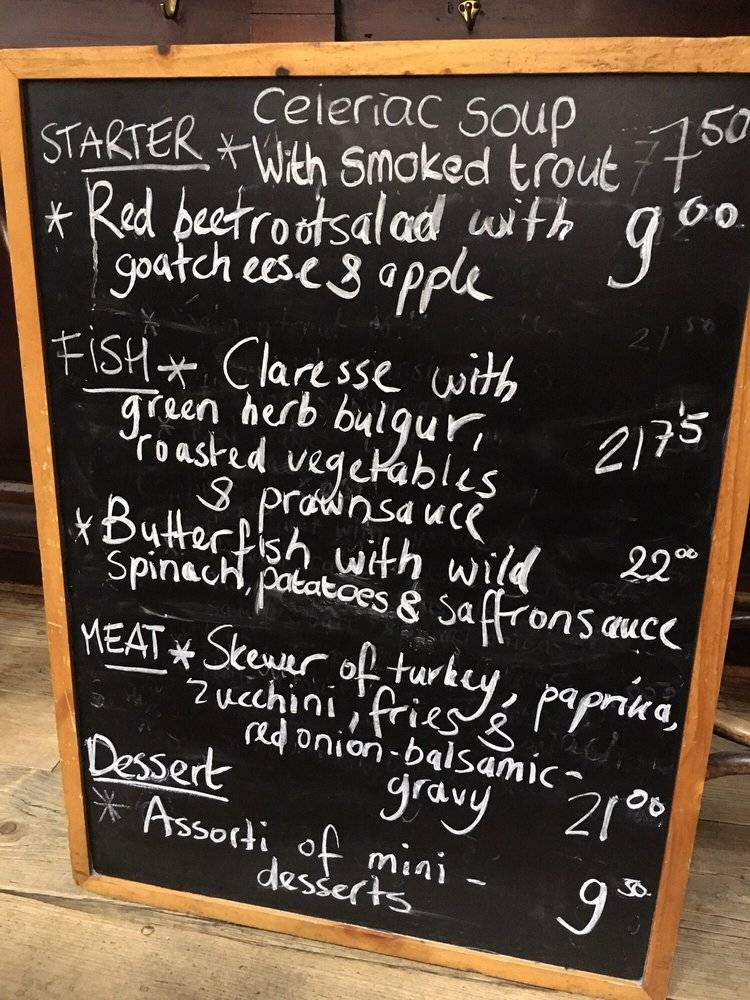 Celeriac soup
STARTER * With smoked trout 7 50
* Red beetrootsalad with 9 00
goatcheese & apple
FISH * Claresse with
green herb bulgur,
roasted vegetables 21 75
& prawnsauce
* Butterfish with wild 22 00
spinach, patatoes & saffronsauce
MEAT * Skewer of turkey, paprika,
zucchini, fries &
red onion-balsamic-
gravy 21 00
Dessert
* Assorti of mini-
desserts 9 50